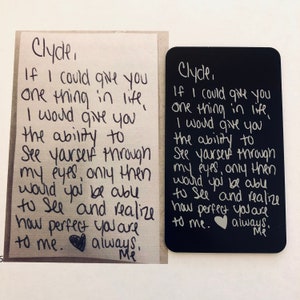 Clyde,
If I could give you
one thing in life,
I would give you
the ability to
see yourself through
my eyes, only then
would you be able
to see and realize
how perfect you are
to me. ♥ always,
Me
Clyde,
If I could give you
one thing in life,
I would give you
the ability to
see yourself through
my eyes, only then
would you be able
to see and realize
how perfect you are
to me. ♥ always,
Me